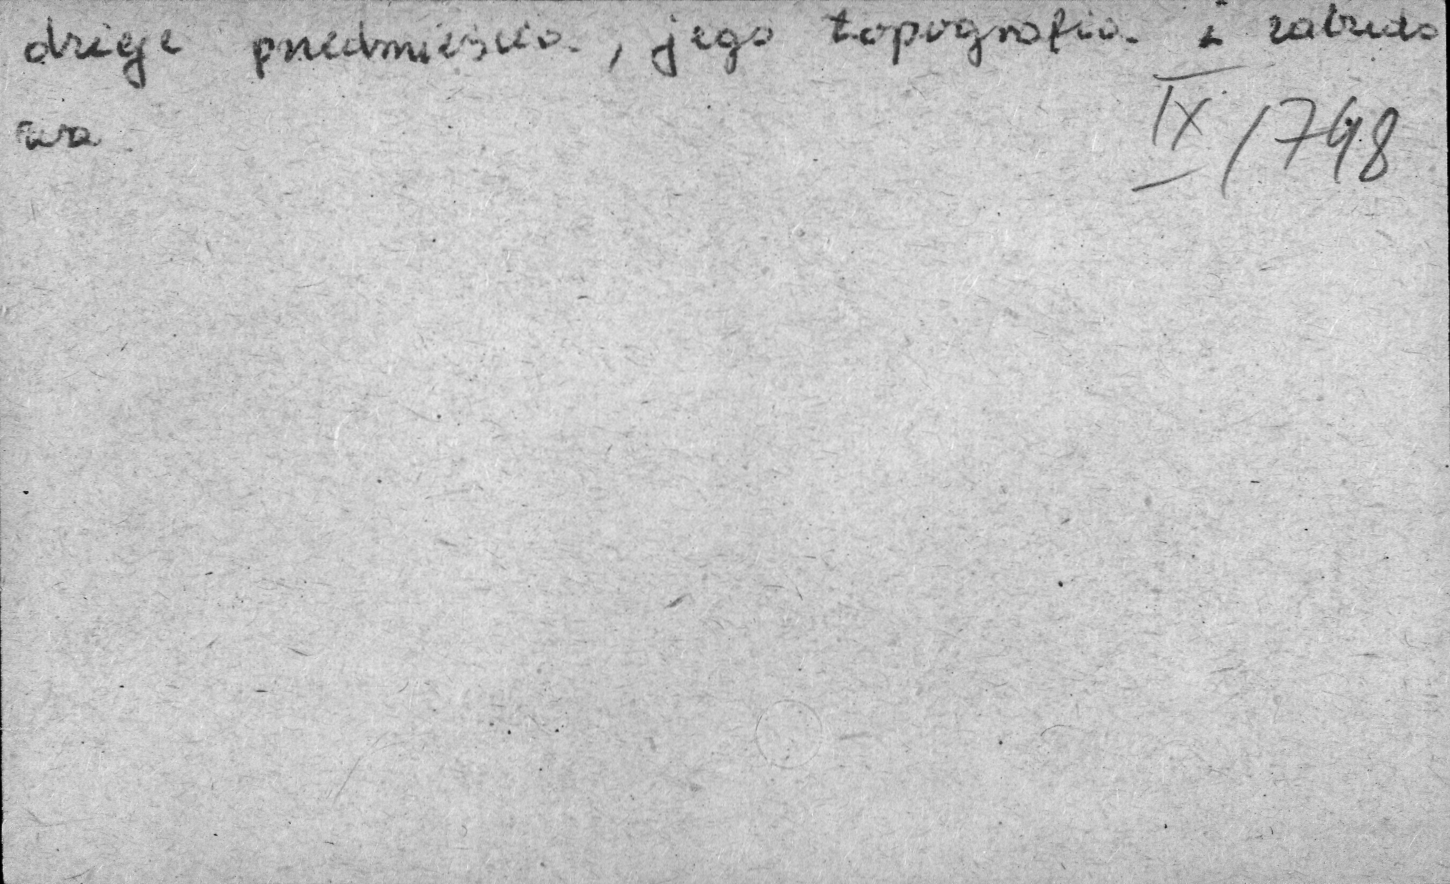 dzieje przedmieścia, jego topografia i zabudo
wa
IX/1748